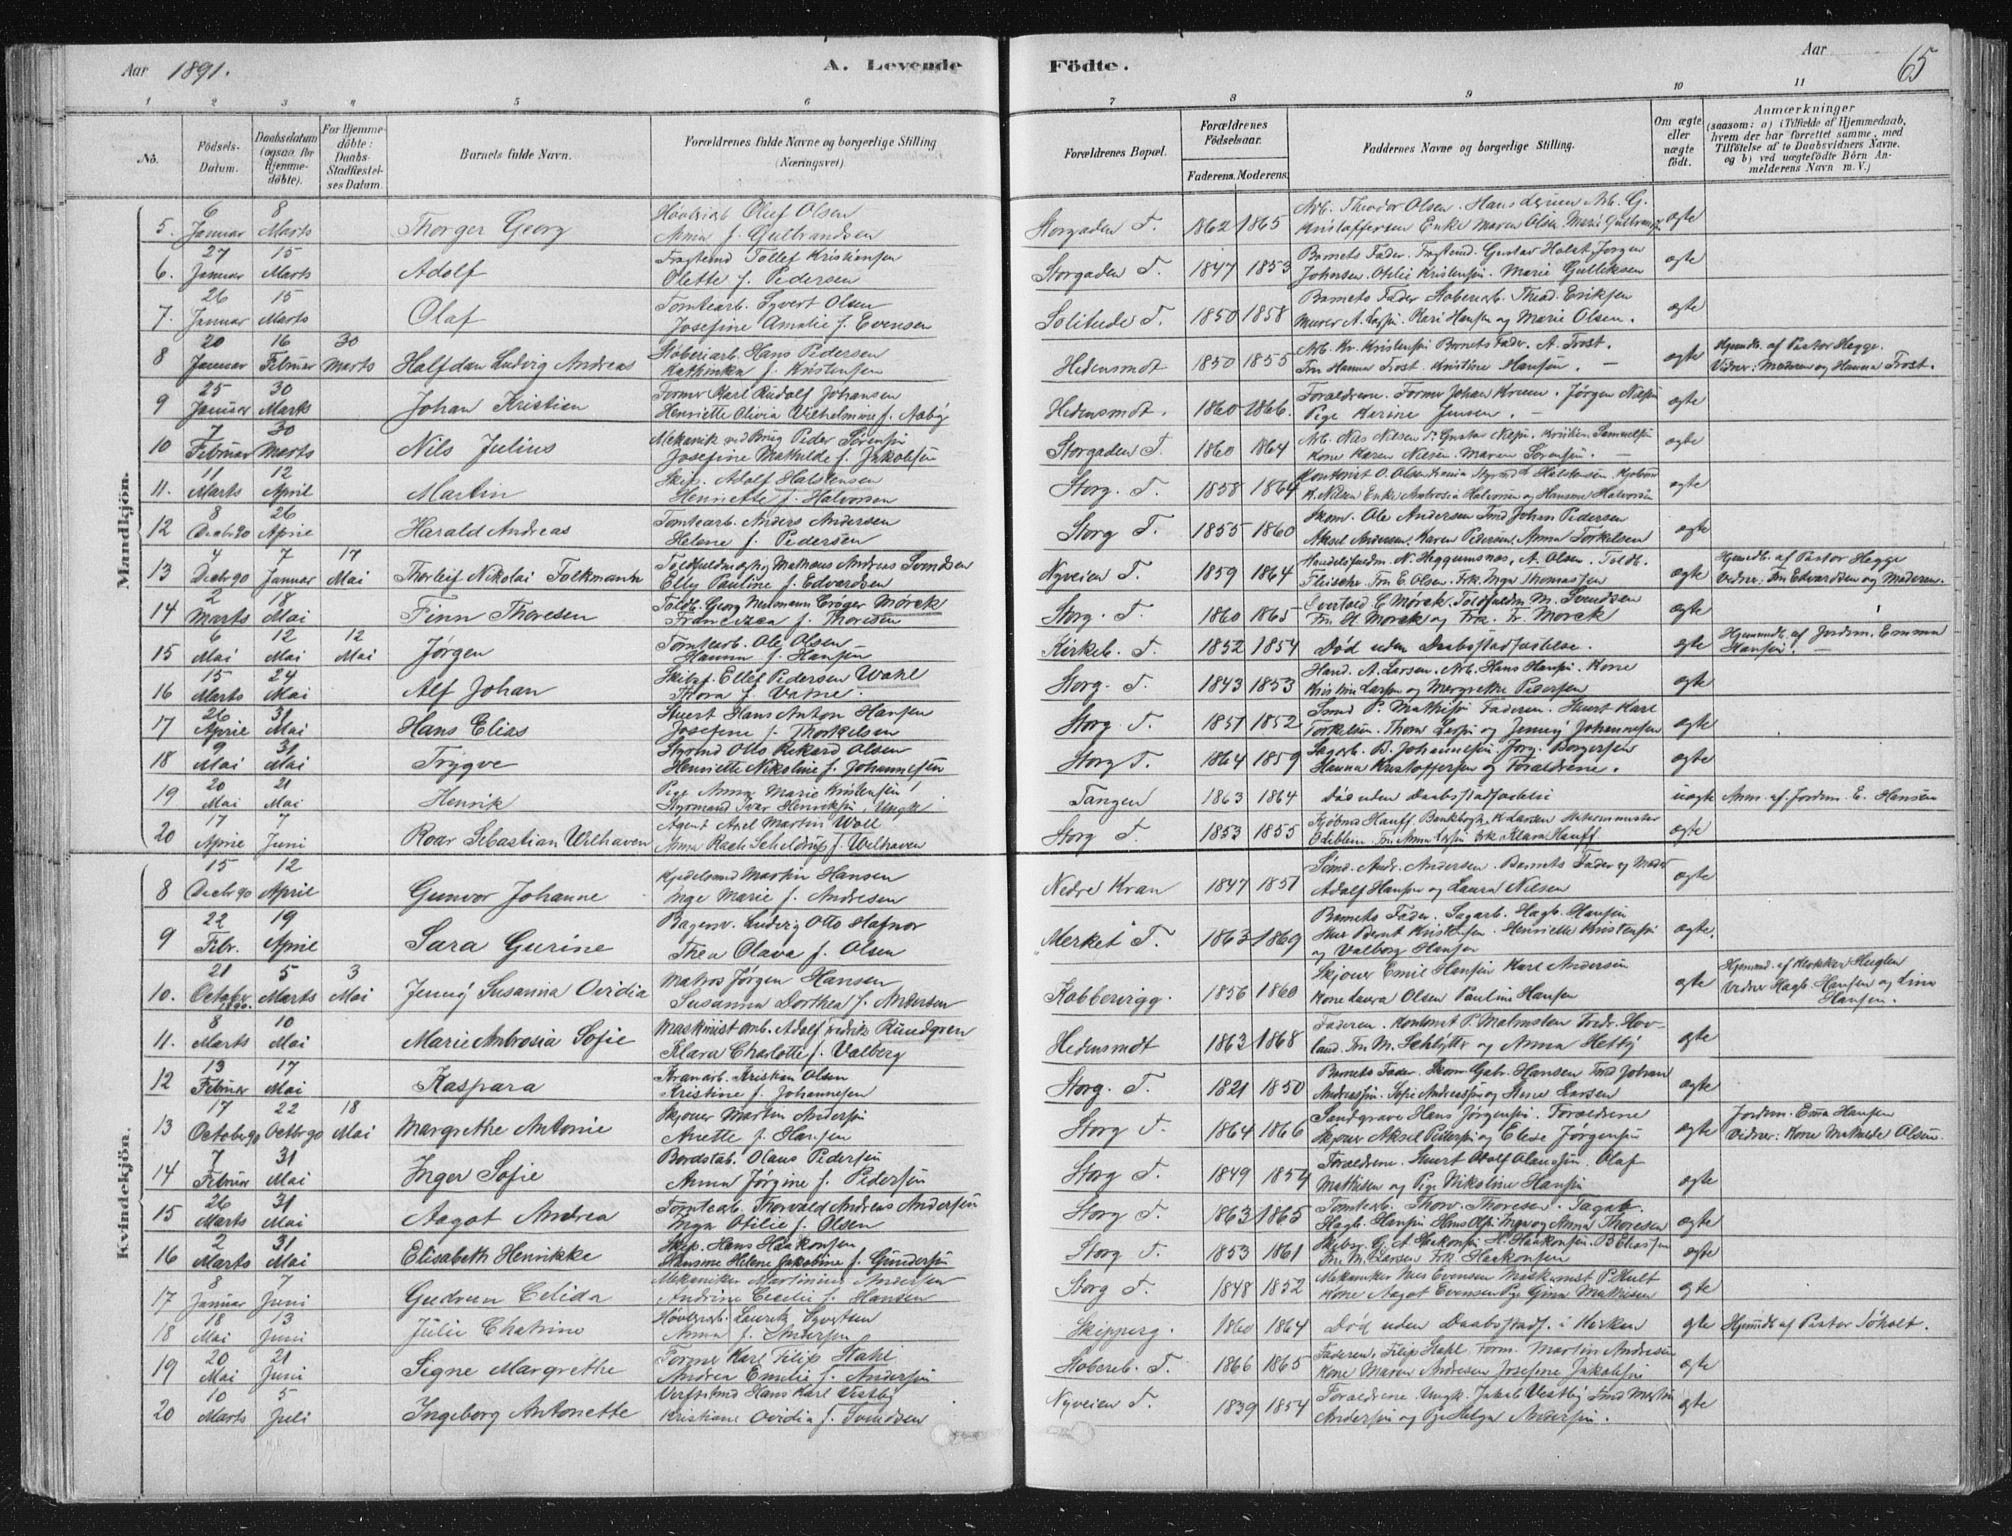 Aar 1891.
A. Levende Födte.
Aar
65
1 2 3 4 5 6 7 8 9 10 11
No.
Födsels-Datum.
Daabsdatum (ogsaa for Hjemme-döbte).
For Hjemme-döbte: Daabs-Stadfæstel-ses Datum.
Barnets fulde Navn.
Forældrenes fulde Navne og borgerlige Stilling (Næringsvei).
Forældrenes Bopæl.
Forældrenes Födselsaar.
Faderens. Moderens.
Faddernes Navne og borgerlige Stilling.
Om ægte eller uægte födt.
Anmærkninger (saasom: a) i Tilfælde af Hjemmedaab, hvem der har forrettet samme, med Tilföielse af to Daabsvidners Navne. og b) ved uægtefödte Börn An-melderens Navn m. V.)
Mandkjön.
5. 6 Januar 8 Marts Thorger Georg Høvleriarb. Oluf Olsen
Anna f. Gulbrandsen Storgaden T. 1862 1865 ægte
6. 27 Januar 15 Marts Adolf Fragtemd Tollef Kristensen
Olette f. Pedersen Storgaden T. 1847 1853 Barnets Fader. Fragtemd. Gustav Holst, Jørgen
Johnsen. Otilie Kristensen. Marie Gulliksen ægte
7. 26 Januar 15 Marts Olaf Tomtearb. Syvert Olsen
Josefine Amalie f. Evensen Solitude T. 1850 1858 Barnets Fader Støberiarb. Theod. Eriksen
Murer A. Larsen. Kari Hansen og Marie Olsen. ægte
8 20 Januar 16 Februar 30 Marts Halfdan Ludvig Andreas Støberiarb. Hans Pedersen
Kathinka f. Kristensen Hedensmdt 1850 1855 Arb. Kr. Kristensen Barnets Fader. A. Trost.
Fru Hanna Trost. Kristine Hansen. ægte Hjemdb. af Pastor Hegge.
Vidner: Moderen og Hanna Trost.
9 25 Januar 30 Marts Johan Kristian Former Karl Rudolf Johansen
Henriette Olivia Vilhelmine f. Aaby Hedensmdt. 1860 1866. Forældrene. Former Johan Kruse. Jørgen Nilsen
Pige Karine Jensen. ægte
10 7 Februar 30 Marts Nils Julius Mekanik ved Brug Peder Sørensen
Josefine Mathilde f. Jakobsen Storgaden T. 1860 1864 Kone Karen Nilsen. Maren Sørensen. ægte
11. 11 Marts 12 April Martin Skip. Adolf Halstensen
Henriette f. Halvorsen Storg. T. 1858 1864 ægte
12 8 Decbr 90 26 April Harald Andreas Tomtearb. Anders Andersen
Helene f. Pedersen Storg T. 1855 1860 Skom. Ole Andersen Tmd Johan Pedersen
Aksel Andersen. Karen Pedersen. Anna Torkelsen ægte
13 4 Decbr 90 7 Januar 17 Mai Thorleif Nikolai Folkmann Toldfuldmægtig Mathæus Andreas Svendsen
Elly Pauline f. Edvardsen Nyveien T. 1859 1864 Handelsfuldm. N. Heggumsnæs, A. Olsen. Toldb.
Fleischer. Fru E. Olsen. Frk. Inga Thomassen ægte Hjemdb. af Pastor Hegge
Vidner: Fru Edvardsen og Moderen.
14 2 Marts 18 Mai Finn Thoresen Toldb. Georg Neumann Crøger Mørck
Franciska f. Thoresen Storg. T. 1860 1865 Overtold. C Mørck. Toldfuldm. M. Svendsen
Fru H. Mørck og Frk. Fr. Mørck ægte
15 6 Mai 12 Mai 12 Mai Jørgen Tomtearb. Ole Olsen
Hanna f. Hansen Kirkeb. T. 1852 1854 Død uden Daabsstadfæstelse. ægte Hjemmdb. af Jordm. Emma
Hansen.
16 15 Marts 24 Mai Alf Johan Skibsf. Ellef Pedersen Wahl
Thora f. Vatne. Storg. T. 1843 1853 Hand. A. Larsen. Arb. Hans Hansen. Kone
Kristine Larsen og Margrethe Pedersen ægte
17 26 April 31 Mai Hans Elias Stuert Hans Anton Hansen
Josefine f. Thorkelsen Storg. T. 1851 1852 Smd P. Mathisen Faderen. Stuert Karl
Torkelsen. Thora Larsen og Jenny Johannesen ægte
18 9 Mai 31 Mai Trygve Styrmd Otto Rikard Olsen
Henriette Nikoline f. Johannesen Storg T. 1864 1859 Sagarb. B. Johannesen. Jørg. Borgersen
Hanna Kristoffersen og Forældrene. ægte
19 20 Mai 21 Mai Henrik Pige Anna Marie Kristensen
Styrmand Ivar Henriksen, Ungk. Tangen 1863 1864 Død uden Daabsstadfæstelse uægte Anm. af Jordm. E. Hansen
20 17 April 7 Juni Roar Sebastian Welhaven Agent Axel Martin Woll
Anna Rach Scheldrup f. Welhaven Storg T. 1853 1855 Odeblom. Fru Anna Larsen Frk. Klara Hauff ægte
Kvindekjön.
8 15 Decbr 90 12 April Gunvor Johanne Kjedelsmd Martin Hansen
Inge Marie f. Andresen Nedre Kran 1847 1851 Tømd. Andr. Andersen. Barnets Fader og Moder
Adolf Hansen og Laura Nilsen ægte
9 22 Febr. 19 April Sara Gurine Bagersv. Ludvig Otto Hafnor
Thea Olava f. Olsen Merket T. 1863 1869 Barnets Fader. Sagarb. Hagb. Hansen
Bernt Kristensen. Henriette Kristensen
og Valborg Hansen ægte.
10. 21 October 1890. 5 Marts 3 Mai Jenny Susanna Ovidia Matros Jørgen Hansen
Susanna Dorthea f. Andersen Kobbervigg. 1856 1860 Skjøuer Emil Hansen Karl Andersen
Kone Laura Olsen Pauline Hansen ægte Hjemmd. af Klokker Huglen
Vidner Hagb. Hansen og Lina
Hansen.
11. 8 Marts 10 Mai Marie Ambrosia Sofie Maskinist Adolf Fredrik Rundgren
Klara Charlotte f. Valberg Hedensmdt 1863 1868 Faderen. Kontorist P. Malmsten Fredr. Hov-
land. Fru M. Schlytter og Anna Hetby ægte
12 13 Februar 17 Mai Kaspara Kranarb. Kristian Olsen
Kristine f. Johannesen Storg. T. 1821 1850 Barnets Fader. Skom. Gabr. Hansen Tmd Johan
Andreassen. Sofie Andreassen og Stine Larsen ægte
13 17 October 90 22 Octbr 90 18 Mai Margrethe Antonie Skjøuer Martin Andersen
Anette f. Hansen Storg T. 1864 1866 Sandgrave Hans Jørgensen. Forældrene
Skjøuer Aksel Pettersen og Elise Jørgensen ægte Jordm. Emma Hansen
Vidner: Kone Mathilde Olsen.
14 7 Februar 31 Mai Inger Sofie Bordstab. Olaus Pedersen
Anna Jørgine f. Pedersen Storg T. 1849 1854 Forældrene. Stuert Adolf Olaussen. Olaf
Mathisen og Pige Nikoline Hansen ægte
15 26 Marts 31 Mai Aagot Andrea Tomtearb. Thorvald Andreas Andersen
Inga Otilie f. Olsen Storg T. 1863 1865 Tomtearb. Thorv. Thoresen. Sagarb.
Hagb. Hansen Hans Olsen Inga og Anna Thoresen ægte
16 2 Marts 31 Mai Elisabeth Henrikke Skip. Hans Haakonsen
Hansine Helene Jakobine f. Gundersen Storg T. 1853 1861 Fru M. Larsen Frk. Haakonsen ægte
17 8 Januar 7 Juni Gudrun Celida Mekaniker Martinius Andersen
Andrine Cecilie f. Hansen Storg T. 1848 1852 Mekaniker Nils Evensen Maskinist P. Hult
Kone Aagot Evensen Pige Gina Mathisen ægte
18 18 Mai 13 Juni Julie Chatrine Høvleriarb. Lauritz Syvertsen
Anna f. Andersen Skipperg. 1860 1864 Død uden Daabsstadf. i Kirken ægte Hjemdb af Pastor Søholt.
19 20 Mai 21 Juni Signe Margrethe Former Karl Filip Stahl
Andrea Emilie f. Andersen Støbereb. T. 1866 1865 Faderen, Filip Stahl Form. Martin Andresen
Kone Maren Andresen Josefine Jakobsen ægte
20 10 Marts 5 Juli Ingeborg Antonette Verftsmd Hans Karl Vestby
Kristiane Ovidia f. Svendsen Nyveien T. 1839 1854 Forældrene. Ungk. Jakob Vestby Smd Martin
Andersen og Pige Helga Andersen. ægte